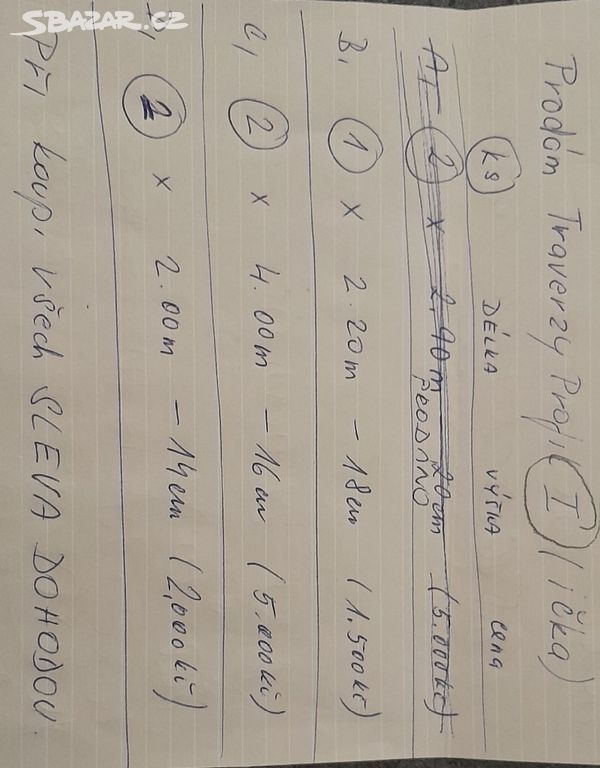 SBAZAR.CZ
Prodám Traverzy Profil I (íčka)
ks DÉLKA VÝŠKA cena
A, 2 x 2,90m - 20cm (5.000kč)
PRODÁNO
B, 1 x 2.20m - 18cm (1.500kč)
C, 2 x 4.00m - 16cm (5.000kč)
D, 2 x 2.00m - 14cm (2,000kč)
Při koupi všech SLEVA DOHODOU